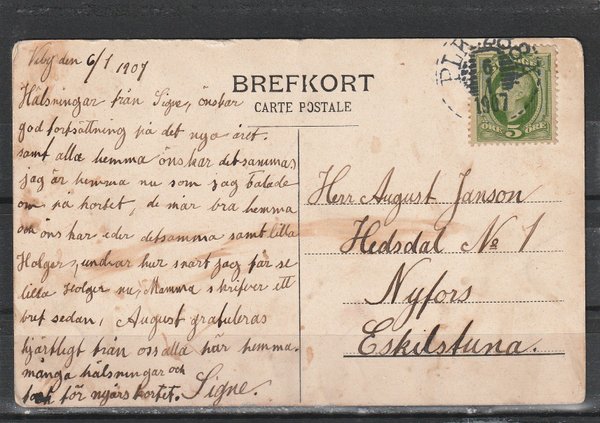 Viby den 6/1 1907
Hälsningar från Signe, önskar
god fortsättning på det nya året.
samt alla hemma önskar detsamma,
jag är hemma nu som jag talade
om på kortet, de mår bra hemma
och önskar eder detsamma samt lilla
Holger, undrar hur snart jag får se
lilla Holger nu, Mamma skrifver ett
bref sedan, August gratuleras
hjärtligt från oss alla här hemma.
många hälsningar och
tack för nyårskortet. Signe.
BREFKORT
CARTE POSTALE
1907
ÖRE 5 ÖRE
Herr August Janson
Hedsdal No 1
Nyfors
Eskilstuna.